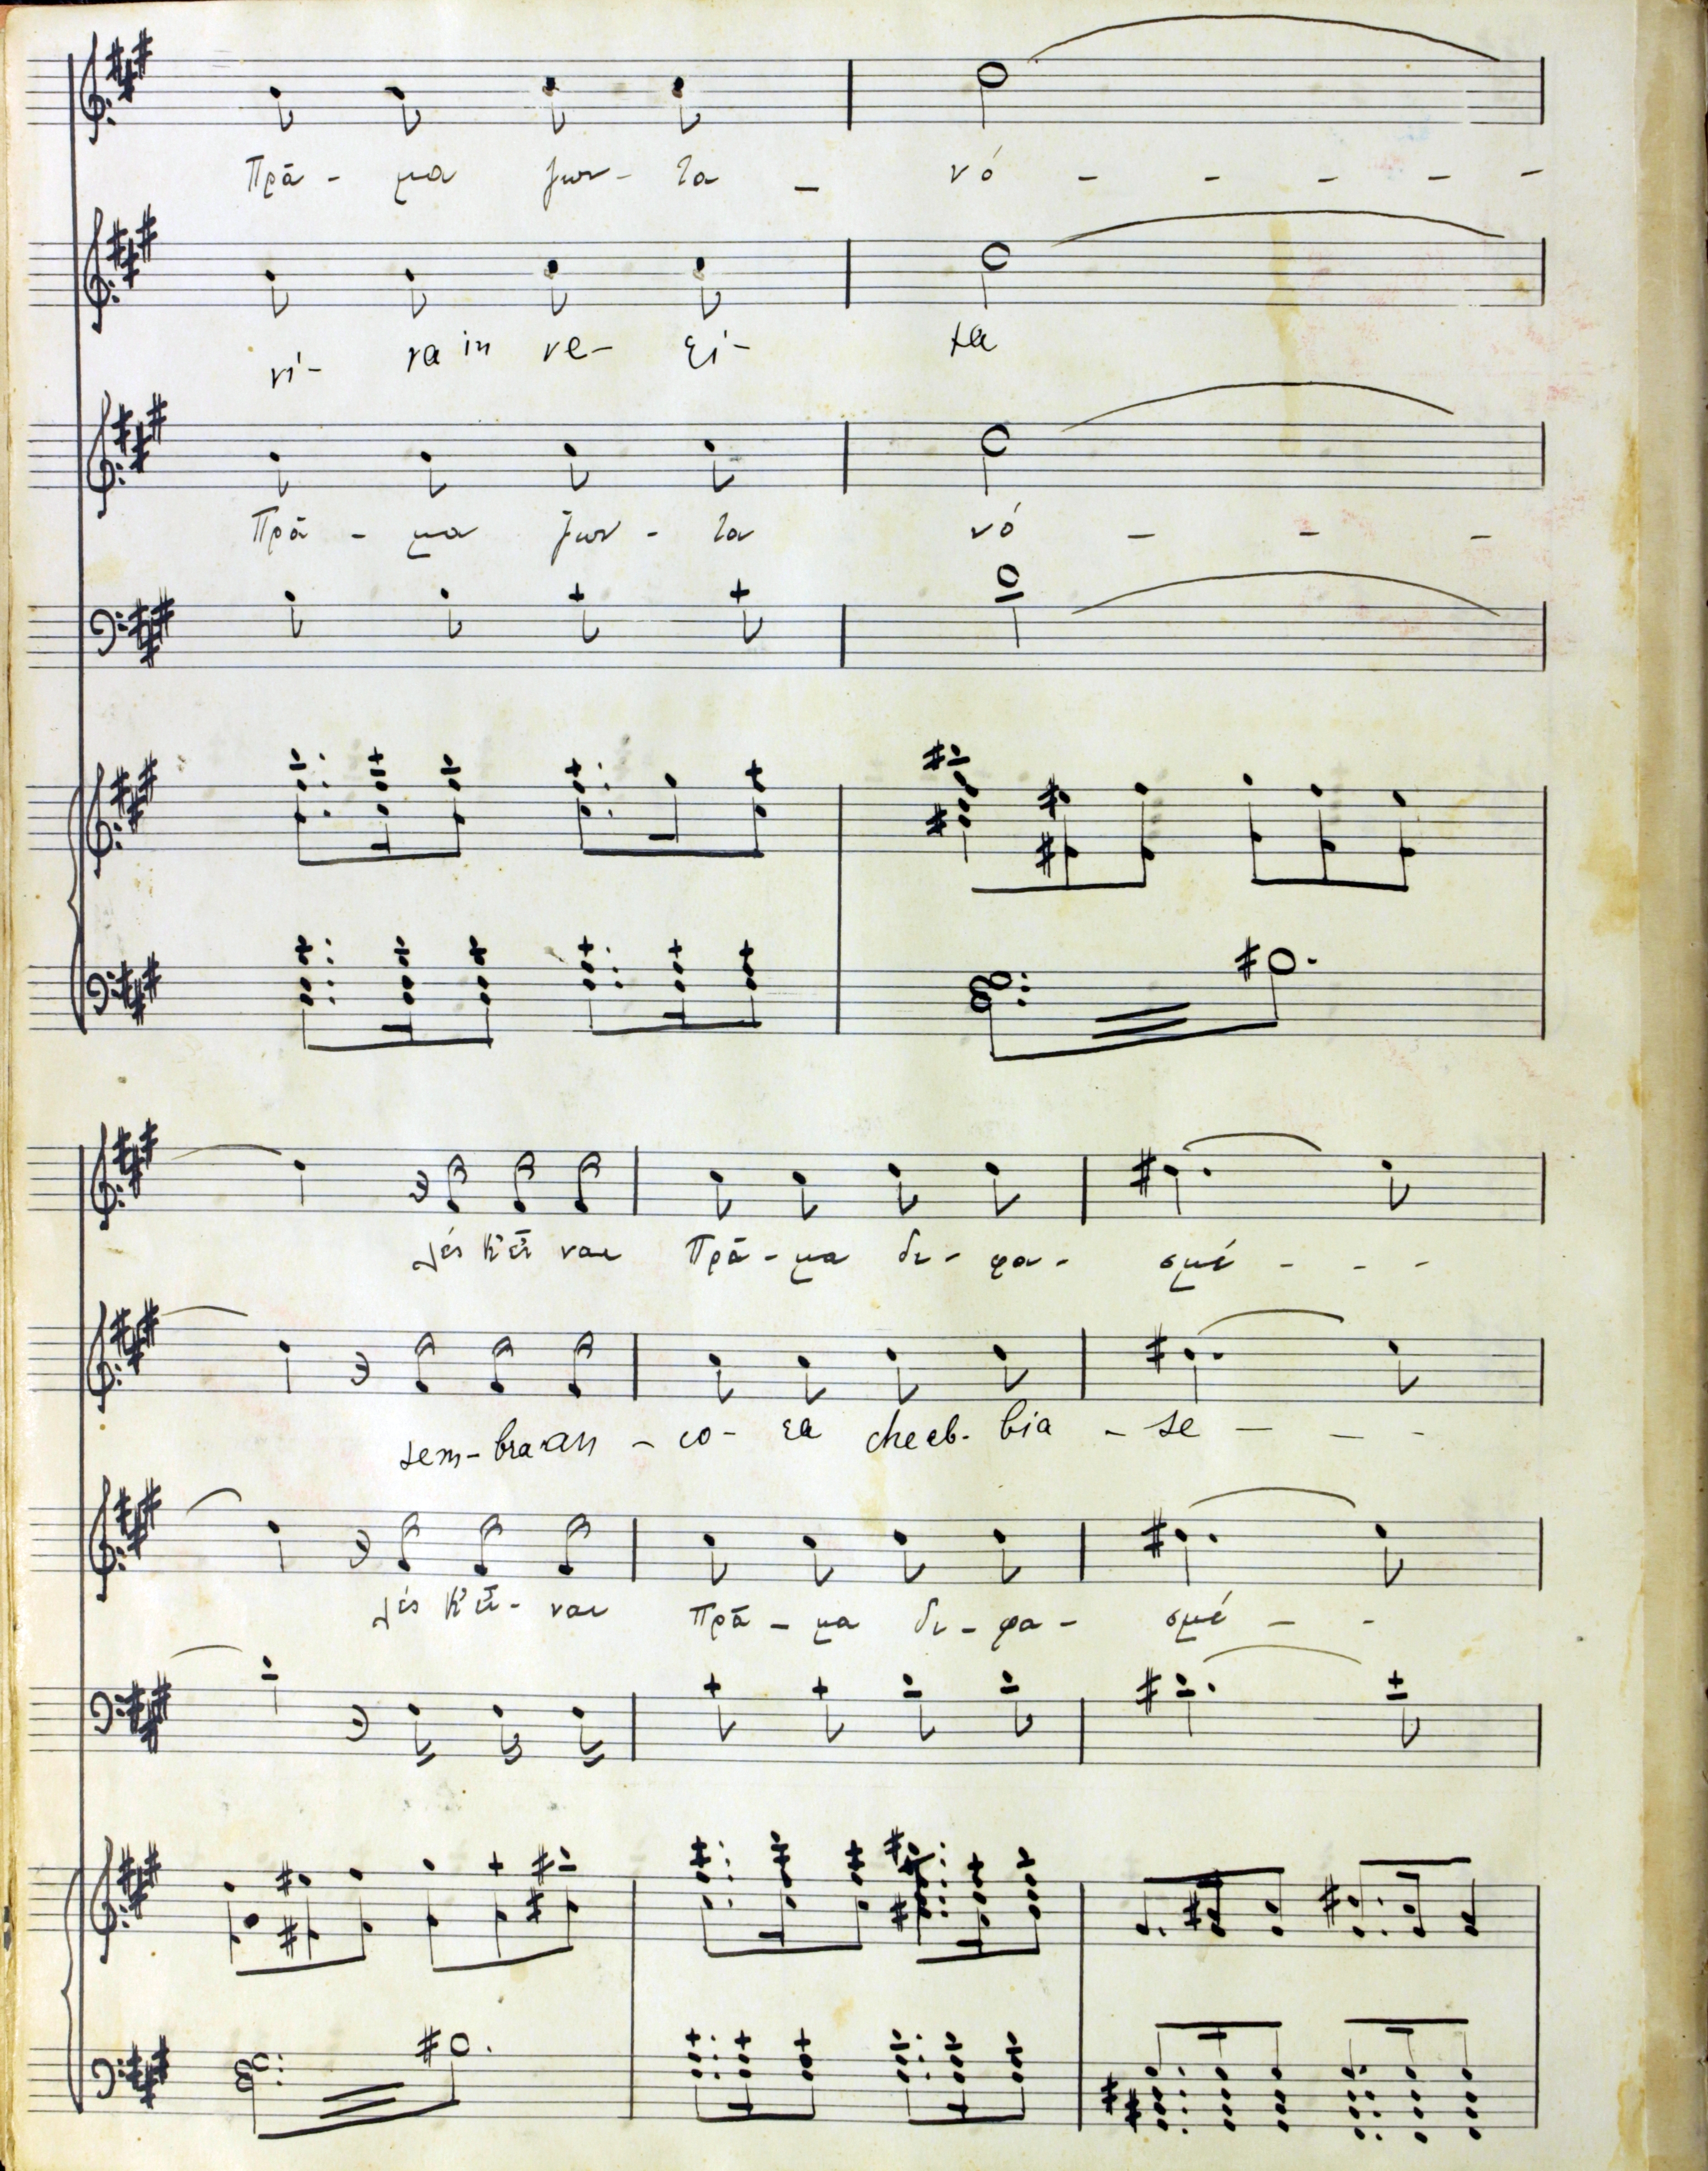 Πρᾶ - μα ζων - τα - νό - - - - -
vi - va in ve - ri - ta
Πρᾶ - μα ζων - τα νό - - -
λές κ' εἶ ναι Πρᾶ - μα δι - φα - σμέ - - -
sem - bra an - co - ra che eb - bia - se - - - -
λές κ' εἶ - ναι πρᾶ - μα δι - φα - σμέ - -